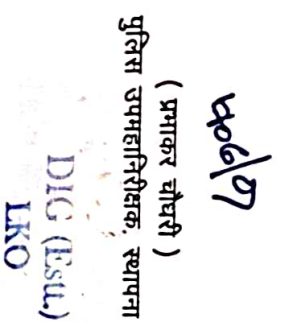 ( प्रभाकर चौधरी )
पुलिस उपमहानिरीक्षक, स्थापना
DIG (Estt.)
LKO